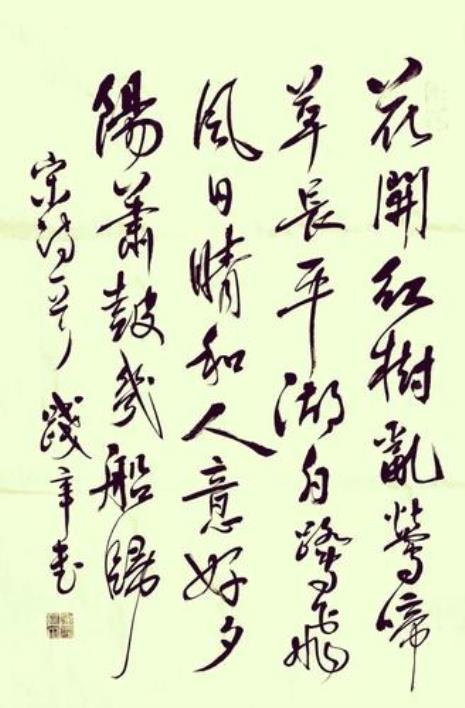 花開紅樹亂鶯啼
草長平湖白鷺飛
風日晴和人意好夕
陽蕭鼓幾船歸
宋詩一首 踐辛書